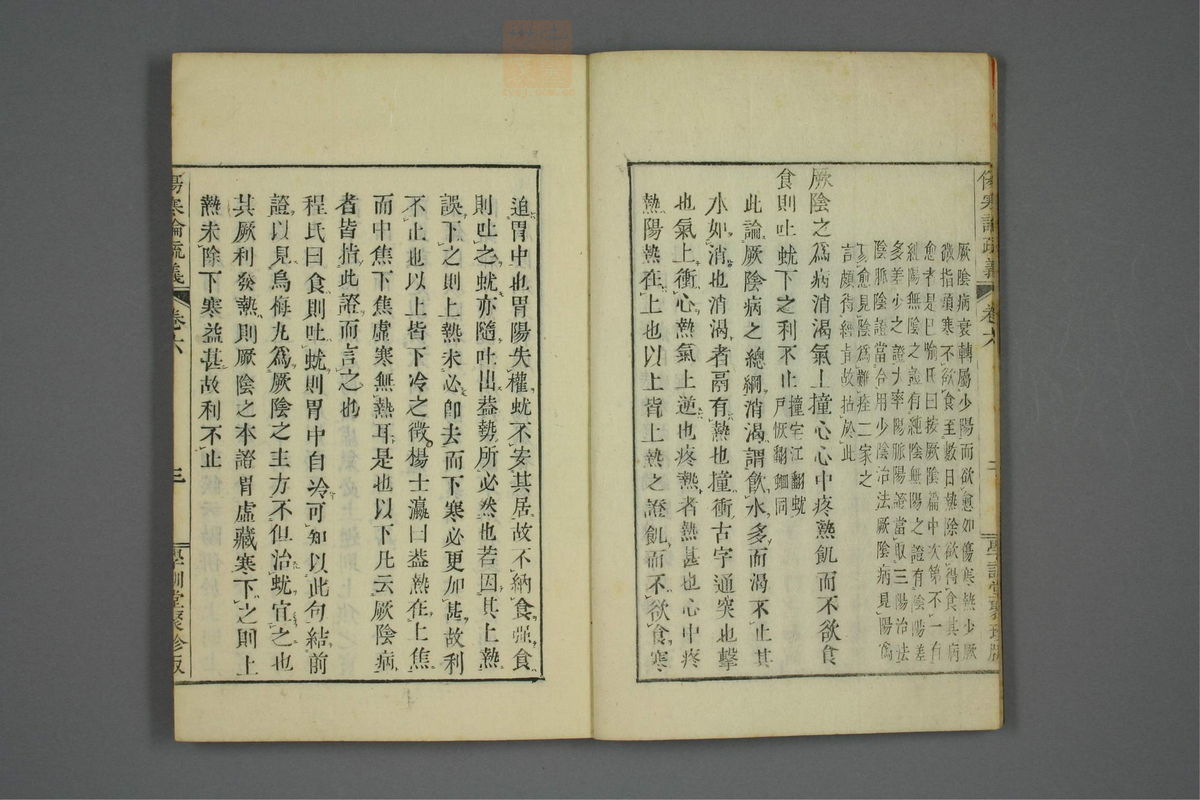 傷寒論疏義 卷六 學訓堂聚珍版
厥陰病衰轉屬少陽而欲愈如傷寒熱少厥
微指頭寒不欲食至數日熱除欲得食其病
愈者是已喻氏曰按厥陰篇中次第不一有
純陽無陰之證有純陰無陽之證有陰陽差
多差少之證大率陽脈陽證當取三陽治法
陰脈陰證當合用少陰治法厥陰病見陽爲
易愈見陰爲難痊二家之
言頗得經旨故拈於此
厥陰之爲病消渴氣上撞心心中疼熱飢而不欲食
食則吐蚘下之利不止撞宅江翻蚘
尸恢翻蛔同
此論厥陰病之總綱消渴謂飲水多而渴不止其
水如消也消渴者鬲有熱也撞衝古字通突也擊
也氣上衝心熱氣上逆也疼熱者熱甚也心中疼
熱陽熱在上也以上皆上熱之證飢而不欲食寒
追胃中也胃陽失權蚘不安其居故不納食強食
則吐之蚘亦隨吐出葢勢所必然也若因其上熱
誤下之則上熱未必卽去而下寒必更加甚故利
不止也以上皆下冷之徵楊士瀛曰葢熱在上焦
而中焦下焦虛寒無熱耳是也以下凡云厥陰病
者皆揩此證而言之也
程氏曰食則吐蚘則胃中自冷可知以此句結前
證以見烏梅丸爲厥陰之主方不但治蚘宜之也
其厥利發熱則厥陰之本證胃虛藏寒下之則上
熱未除下寒益甚故利不止
傷寒論疏義 卷六 三 學訓堂聚珍版